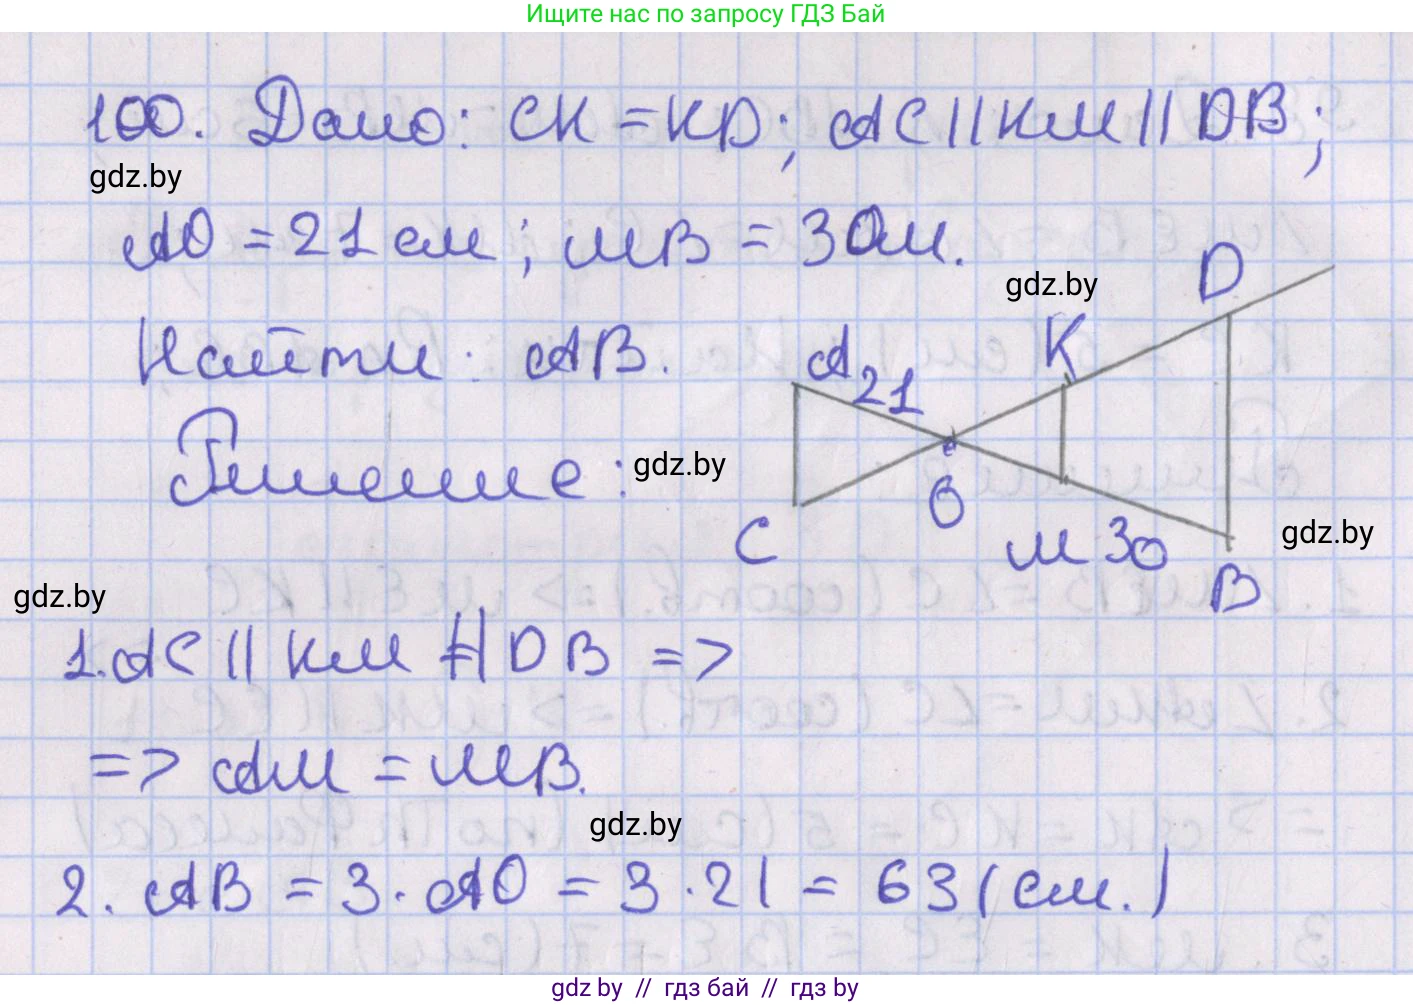 Ищите нас по запросу ГДЗ Бай
100. Дано: CK = KD; AC || KM || DB;
gdz.by
AO = 21 см; MB = 30м.
gdz.by
D
Найти: AB.
A
21
K
Решение:
gdz.by
C
O
M
30
gdz.by
B
gdz.by
1. AC || KM || DB =>
=> AM = MB.
gdz.by
2. AB = 3 · AO = 3 · 21 = 63 (см.)
gdz by // гдз бай // гдз by